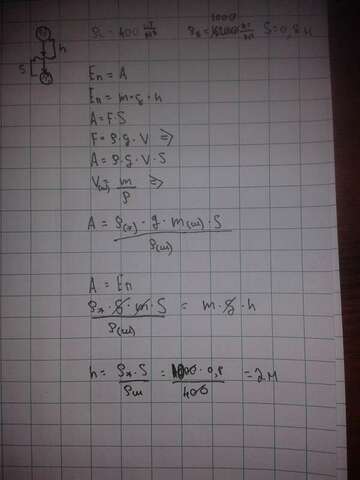 h
S
ρ = 400 кг/м³ ρж = 1000 кг/м³ S = 0,8 м
Eп = A
Eп = m · g · h
A = F · S
F = ρ · g · V ⇒
A = ρ · g · V · S
V(ш) = m/ρ ⇒
A = ρ(ж) · g · m(ш) · S / ρ(ш)
A = Eп
ρж · g · m · S / ρ(ш) = m · g · h
h = ρж · S / ρш = 1000 · 0,8 / 400 = 2 м